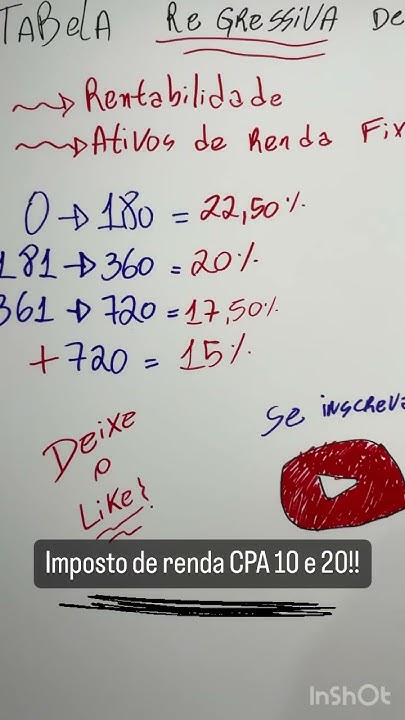 TABELA REGRESSIVA DE
Rentabilidade
Ativos de Renda Fix
0 → 180 = 22,50%
181 → 360 = 20%
361 → 720 = 17,50%
+ 720 = 15%
Se inscreva
Deixe
o
Like!
Imposto de renda CPA 10 e 20!!
InShOt